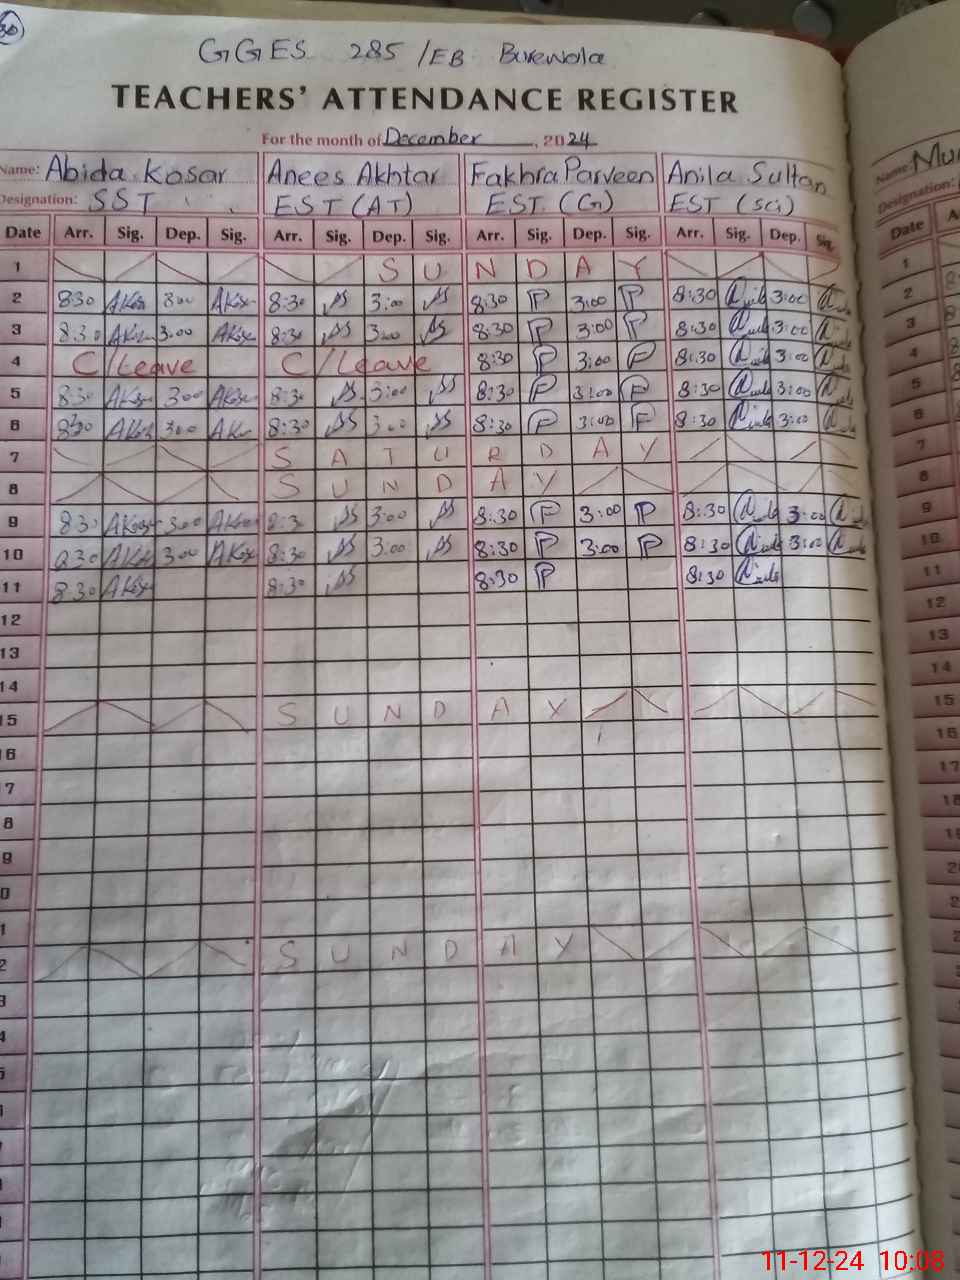 30
GGES 285/EB Burewala
TEACHERS' ATTENDANCE REGISTER
For the month of December, 2024
Name: Abida Kosar Anees Akhtar Fakhra Parveen Anila Sultan Name:
Designation: SST EST (AT) EST (G) EST (Sci) Designation:
Date Arr. Sig. Dep. Sig. Arr. Sig. Dep. Sig. Arr. Sig. Dep. Sig. Arr. Sig. Dep. Sig. Date
1 SUNDAY 1
2 8:30 3:00 8:30 3:00 8:30 P 3:00 P 8:30 3:00 2
3 8:30 3:00 8:30 3:00 8:30 P 3:00 P 8:30 3:00 3
4 C/Leave C/Leave 8:30 P 3:00 P 8:30 3:00 4
5 8:30 3:00 8:30 3:00 8:30 P 3:00 P 8:30 3:00 5
6 8:30 3:00 8:30 3:00 8:30 P 3:00 P 8:30 3:00 6
7 SATURDAY 7
8 SUNDAY 8
9 8:30 3:00 8:30 3:00 8:30 P 3:00 P 8:30 3:00 9
10 8:30 3:00 8:30 3:00 8:30 P 3:00 P 8:30 3:00 10
11 8:30 8:30 8:30 P 8:30 11
12 12
13 13
14 14
15 SUNDAY 15
16 16
7 17
8 18
9
0
1
2 SUNDAY
3
4
5
11-12-24 10:08